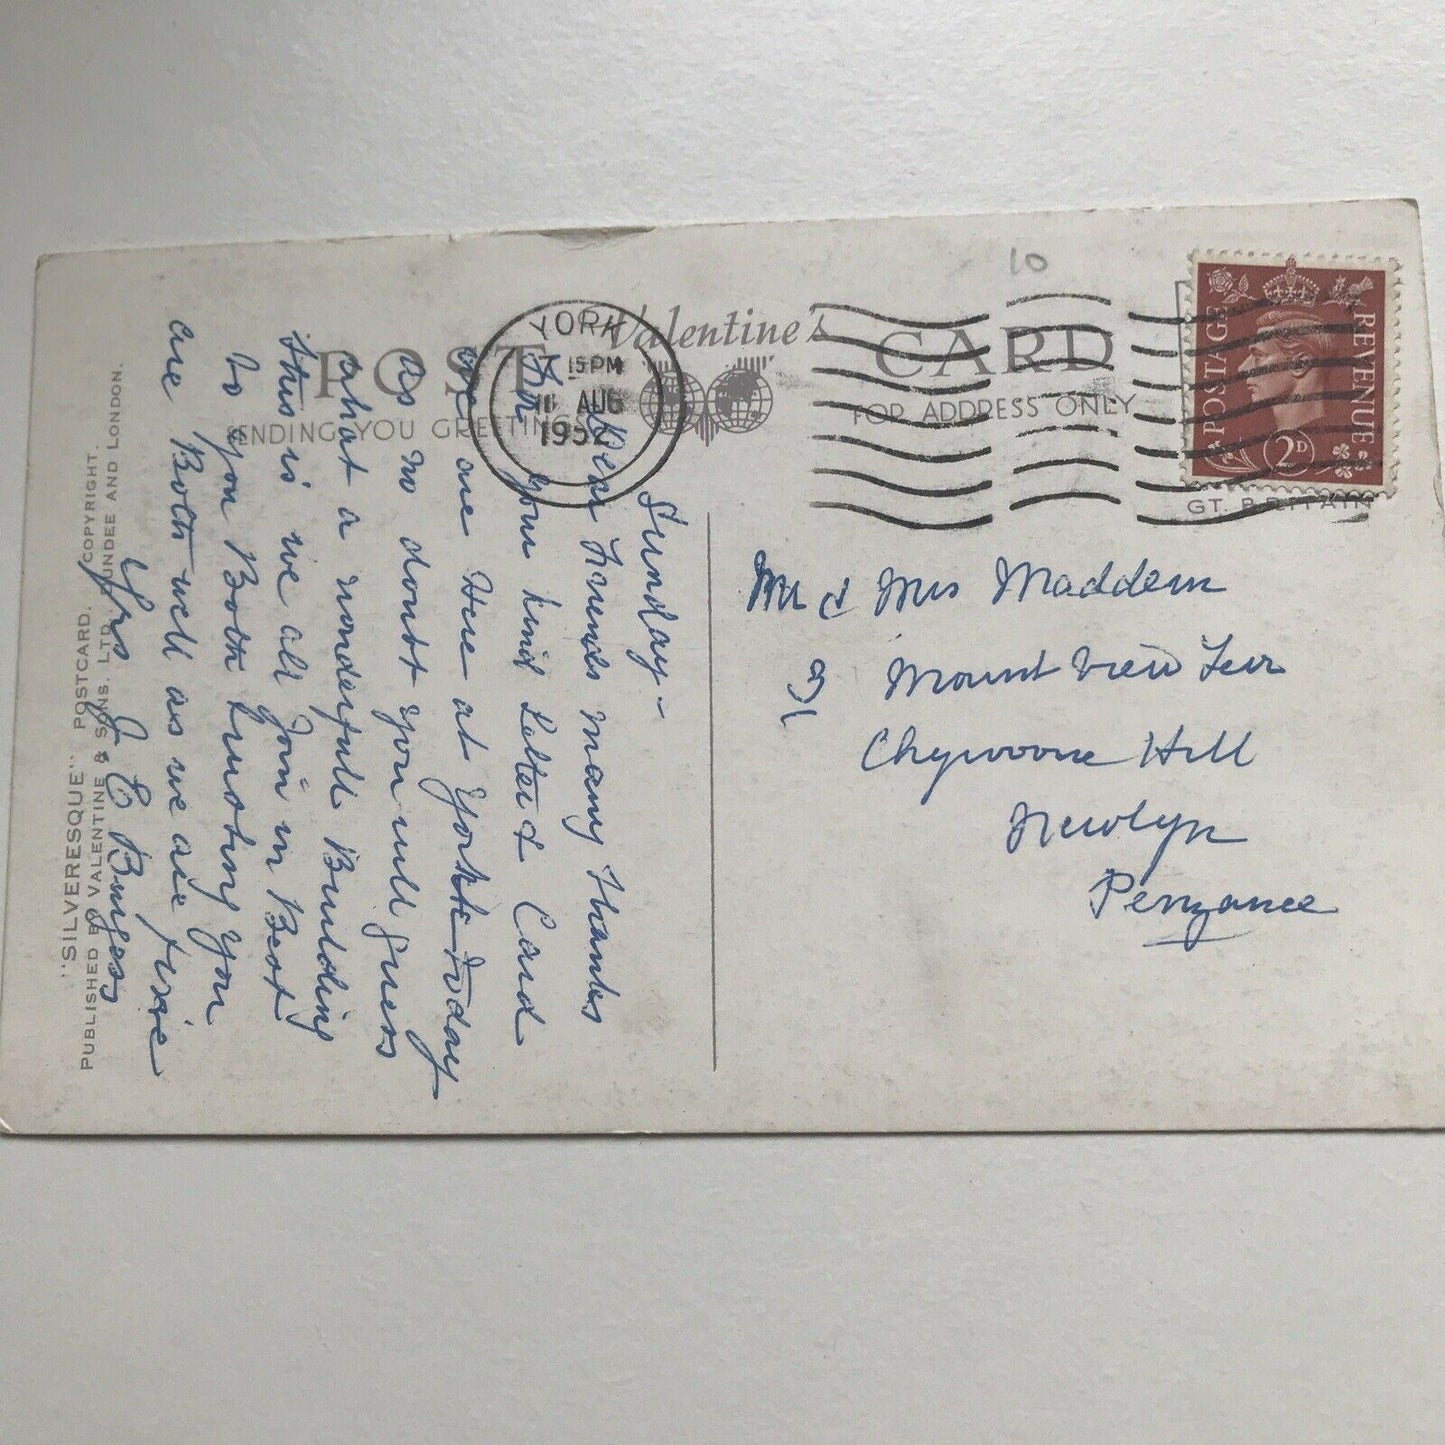 POST CARD
Valentine's
SENDING YOU GREETINGS
FOR ADDRESS ONLY
10
YORK
15 PM
AUG
1952
POSTAGE REVENUE
2D
GT. BRITAIN
"SILVERESQUE" POSTCARD. COPYRIGHT.
PUBLISHED BY VALENTINE & SONS. LTD. DUNDEE AND LONDON.
Sunday -
Dear Friends many Thanks
For your kind Letter & Card
we are Here at York Today
as no doubt you will guess
what a wonderfull Building
this is we all Join in Best
to you Both trusting you
are Both well as we are here
Yrs J E Burgess
Mr & Mrs Maddern
9 Mount View Terr
Chywoone Hill
Newlyn
Penzance